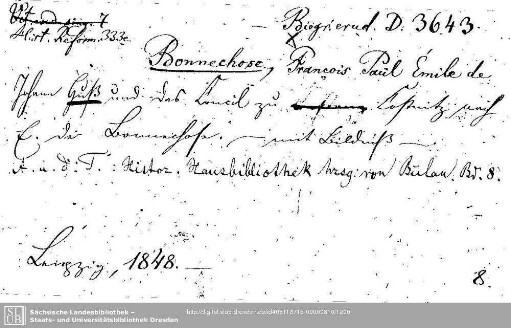 Biogr. erud. D. 3643.
Hist. Reform. 333c
Bonnechose, François Paul Émile de
Johann Huß und das Concil zu Costnitz nach
E. de Bonnechose. — mit Bildniß —
A. u. d. T.: Histor. Hausbibliothek hrsg. von Bülau. Bd. 8.
Leipzig, 1848. —
8.
Sächsische Landesbibliothek –
Staats- und Universitätsbibliothek Dresden